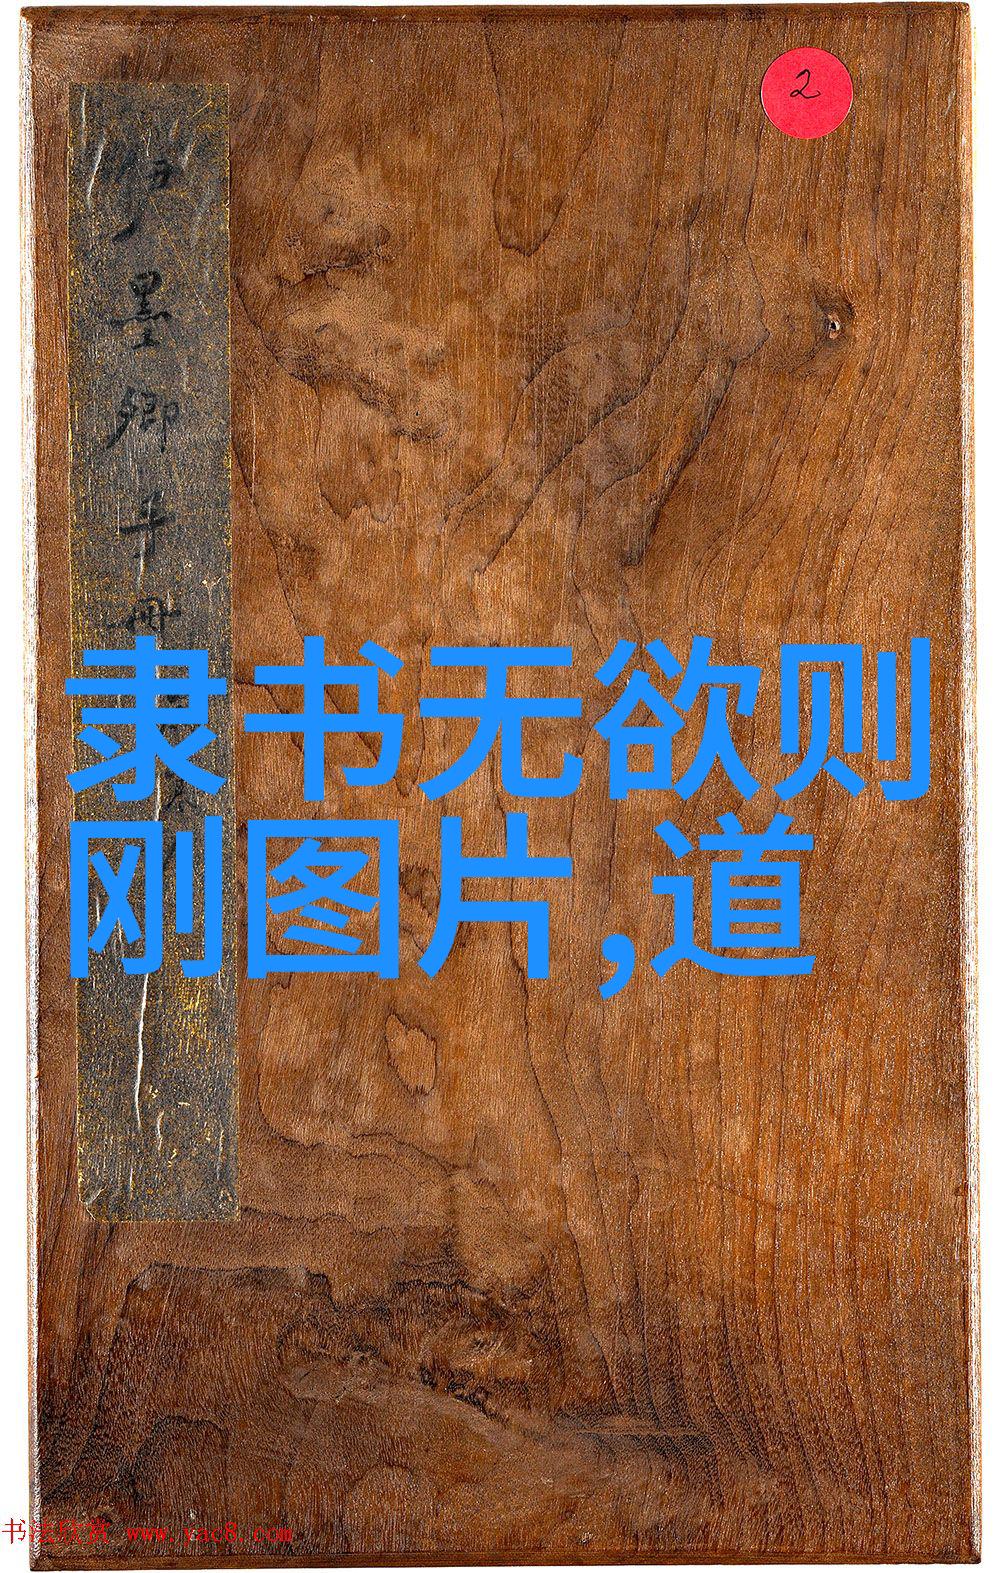 2
墨卿手冊
隶书无欲则
刚图片,道
书法欣赏 www.yac8.com